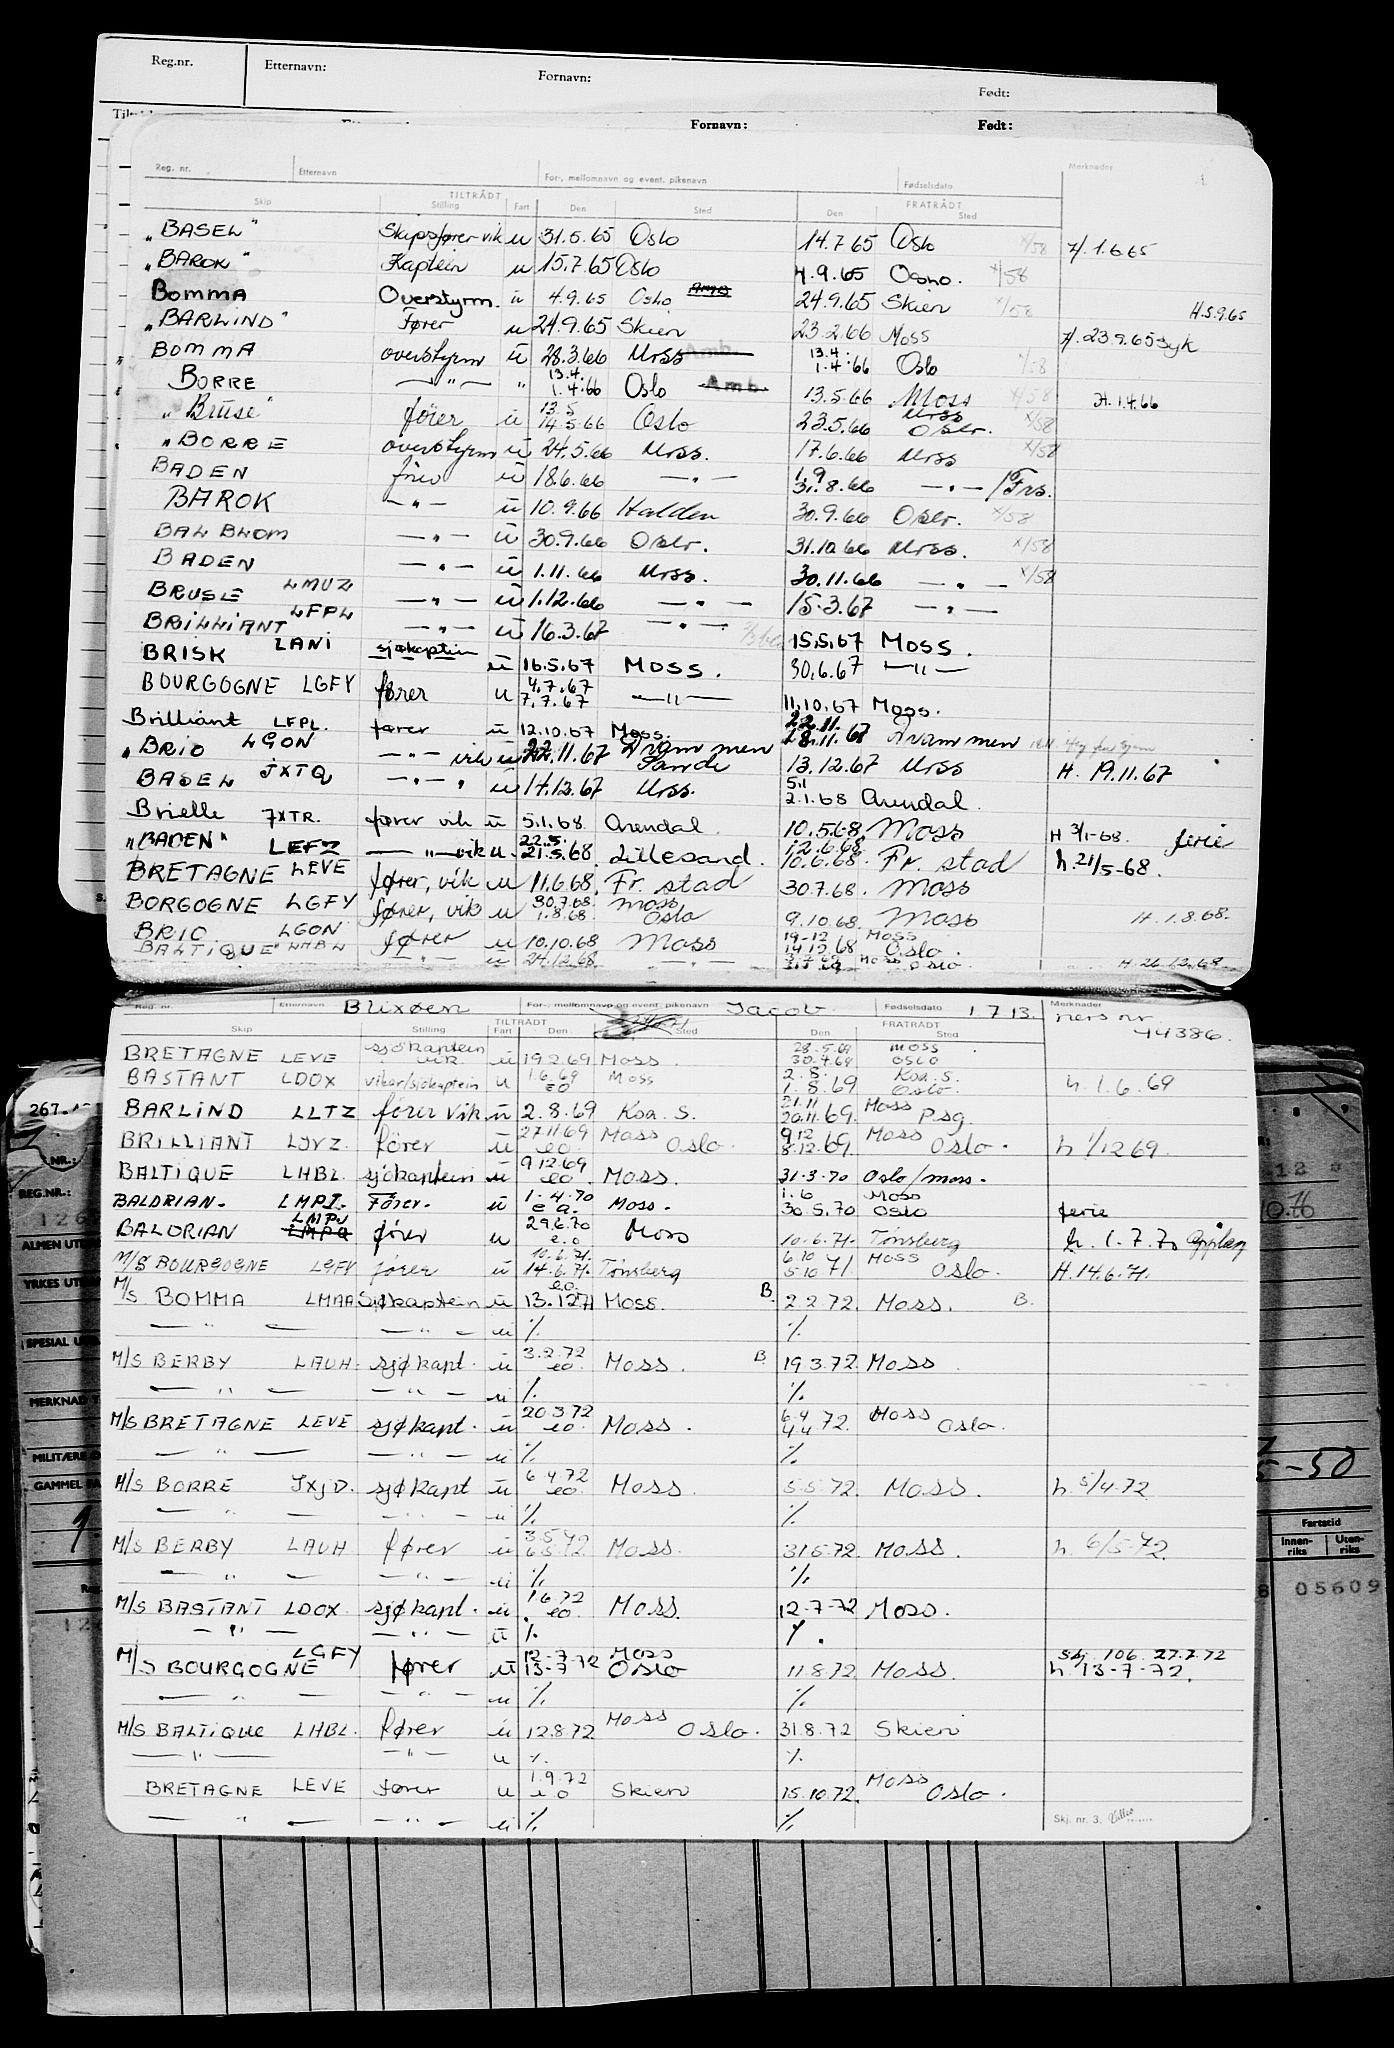 Reg.nr. Etternavn: Fornavn: Født:
Fornavn: Født:
Reg. nr. Etternavn For-, mellomnavn og event. pikenavn Fødselsdato Merknader
Skip TILTRÅDT Stilling Fart Den Sted FRATRÅDT Den Sted
"BASEL" Skipsfører vik u 31.5.65 Oslo 14.7.65 Oslo x/58 H. 1.6.65
"BAROK" Kaptein u 15.7.65 Oslo 4.9.65 Oslo. x/58
BOMMA Overstyrm. u 4.9.65 Oslo 24.9.65 Skien x/58 H.5.9.65
"BARLIND" Fører u 24.9.65 Skien 23.2.66 Moss H. 23.9.65 syk
BOMMA overstyrm u 28.3.66 Moss Amb. 13.4. 1.4.66 Oslo x/58
BORRE — " — " 13.4. 1.4.66 Oslo Amb. 13.5.66 Moss x/58 H. 1.4.66
"Bruse" fører u 13.5 14.5.66 Oslo 23.5.66 Moss Oslo. x/58
"BORRE overstyrm u 24.5.66 Moss. 17.6.66 Moss x/58
BADEN fører u 18.6.66 — " — 1.9 31.8.66 — " — / Frs.
BAROK — " — u 10.9.66 Halden 30.9.66 Oslo. x/58
BALBLOM — " — u 30.9.66 Oslo. 31.10.66 Moss. x/58
BADEN — " — u 1.11.66 Moss. 30.11.66 — " — x/58
BRUSE LMUZ — " — u 1.12.66 — " — 15.3.67 — " —
BRILLIANT LFPL — " — u 16.3.67 — " — 15.5.67 Moss.
BRISK LANI sjøkaptein u 16.5.67 Moss. 30.6.67 — " —
BOURGOGNE LGFY fører u 4.7.67 7.7.67 — " — 11.10.67 Moss.
Brilliant LFPL. fører u 12.10.67 Moss. 22.11. 18.11.67 Drammen
"BRIO LGON — " — vik u 22.11.67 Drammen Sande 13.12.67 Moss H. 19.11.67
BASEL JXTQ — " — " u 14.12.67 Moss. 5.1 2.1.68 Arendal.
Brielle JXTR. fører vik u 5.1.68. Arendal. 10.5.68. Moss H 3/1-68. ferie
"BADEN" LEFZ — " — vik u. 22.5. 21.5.68 Lillesand. 12.6.68 10.6.68. Fr. stad h. 21/5-68.
BRETAGNE LEVE fører, vik u 11.6.68. Fr. stad 30.7.68. Moss
BORGOGNE LGFY fører, vik u 30.7.68. 1.8.68. Moss Oslo 9.10.68. Moss H. 1.8.68.
BRIO LGON fører u 10.10.68 Moss 19-12 14.12.68 Moss Oslo.
BALTIQUE" LHBL — " — u 24.12.68. — " — Moss Oslo. H. 26.12.68
Reg. nr. Etternavn Blixøen For-, mellomnavn og event. pikenavn Jacob Fødselsdato 1 7 13. Merknader
Pers nr. 44386.
Skip TILTRÅDT Stilling Fart Den Sted FRATRÅDT Den Sted
BRETAGNE LEVE sjøkaptein vik. u 19.2.69 Moss. 28.5.69 30.4.69 Moss Oslo
BASTANT LDOX vikar/sjøkaptein u 1.6.69 eo Moss 2.8. 1.8.69 Ksa. S. Oslo. h. 1.6.69
BARLIND LLTZ fører vik u 2.8.69 Ksa. S. 21.11 20.11.69. Moss Psg.
BRILLIANT LJVZ. fører u 27.11.69 eo Moss Oslo. 9.12 8.12.69 Moss Oslo. h 1/12 69.
BALTIQUE LHBL. sjøkaptein u 9.12.69 eo. Moss. 31-3-70 Oslo/moss.
BALDRIAN. LMPJ. Fører. u 1.4.70 e o. Moss. 1.6 30.5.70 Moss Oslo ferie
BALDRIAN LMPJ LMPQ fører u 29.6.70 e.o Moss 10.6.71. Tønsberg h. 1.7.70
M/S BOURGOGNE LGFY fører u 10.6.71. 14.6.71. Tønsberg 6.10 5.10.71. Moss Oslo. H. 14.6.71.
M/S BOMMA LMAA Sjøkaptein u eo. 13.12.71 Moss. B. 2.2.72. Moss. B.
— " — — " — u % %
M/S BERBY LAUH. sjøkapt. u 3.2.72 eo. Moss. B 19.3.72. Moss.
— " — — " — u % %
M/S BRETAGNE LEVE sjøkapt. u 20.3.72 eo. Moss. 6.4 4.4.72. Moss Oslo.
— " — — " — u % %
M/S BORRE JXJD. sjøkapt u 6.4.72 eo. Moss. 5.5.72. Moss. h 5/4.72.
— " — — " — u % %
M/S BERBY LAUH fører u 3.5.72 6.5.72. Moss. 31.5.72. Moss. h 6/5-72.
— " — — " — u % %
M/S BASTANT LDOX. sjøkapt. u 1.6.72 eo. Moss. 12-7-72 Moss.
— " — — " — u % %
M/S BOURGOGNE LGFY fører u 12-7-72 13-7-72 Moss Oslo 11.8.72. Moss. Skj. 106. 27.7.72 h 13-7-72.
— " — — " — u % %
M/S BALTIQUE LHBL. fører u 12.8.72. Moss Oslo. 31.8.72 Skien
— " — — " — u % %
BRETAGNE LEVE fører u 1.9.72 eo Skien 15.10.72. Moss Oslo.
— " — — " — u % %
Skj. nr. 3.
REG.NR.:
GAMMEL
Fartstid
Innen-riks Uten-riks
05609
-50